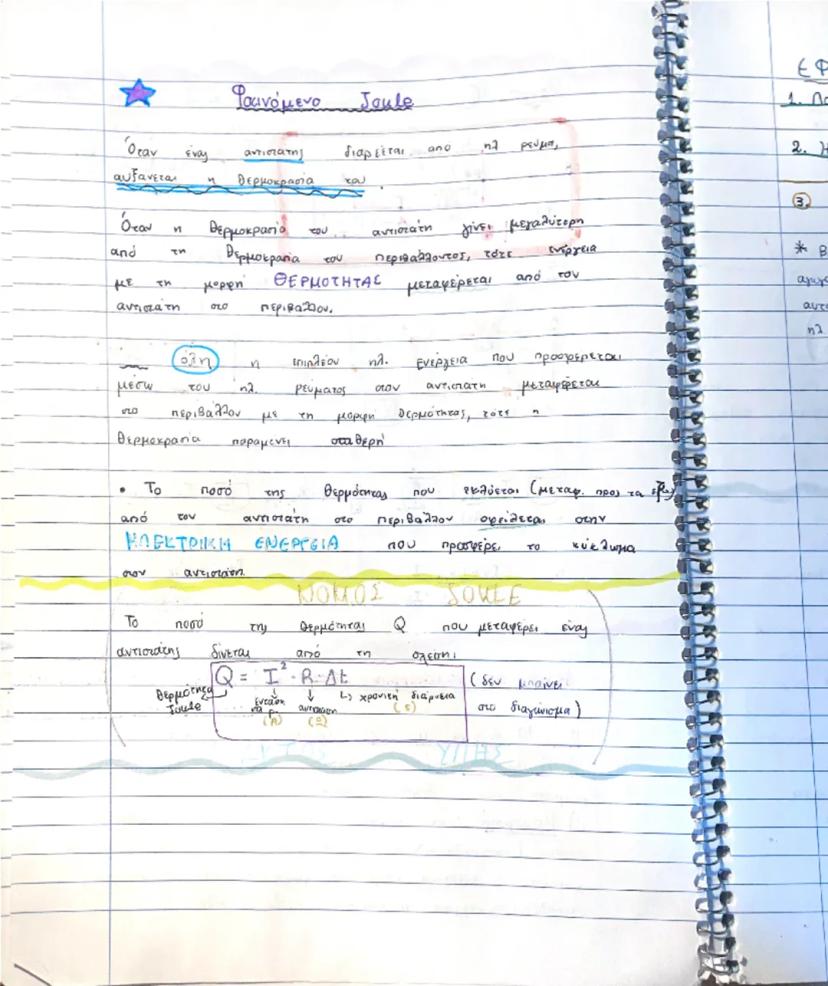 Φαινόμενο Joule
Όταν ένας αντιστάτης διαρρέεται από ηλ ρεύμα,
αυξάνεται η θερμοκρασία του.
Όταν η θερμοκρασία του αντιστάτη γίνει μεγαλύτερη
από τη θερμοκρασία του περιβάλλοντος, τότε ενέργεια
με τη μορφή ΘΕΡΜΟΤΗΤΑΣ μεταφέρεται από τον
αντιστάτη στο περιβάλλον.
όλη η επιπλέον ηλ. ενέργεια που προσφέρεται
μέσω του ηλ. ρεύματος στον αντιστάτη μεταφέρεται
στο περιβάλλον με τη μορφή θερμότητας, τότε η
θερμοκρασία παραμένει σταθερή
• Το ποσό της θερμότητας που εκλύεται (μεταφ. προς τα έξω)
από τον αντιστάτη στο περιβάλλον οφείλεται στην
ΗΛΕΚΤΡΙΚΗ ΕΝΕΡΓΕΙΑ που προσφέρει το κύκλωμα
στον αντιστάτη.
ΝΟΜΟΣ JOULE
Το ποσό της θερμότητας Q που μεταφέρει ένας
αντιστάτης δίνεται από τη σχέση:
Q = I² · R · Δt (δεν μπαίνει
θερμότητα ένταση αντίσταση χρονική διάρκεια στο διαγώνισμα)
Joule (A) (Ω) (s)
ΕΦ
1. Πο
2. Η
3.
* Β
αγωγ
αντι
ηλ